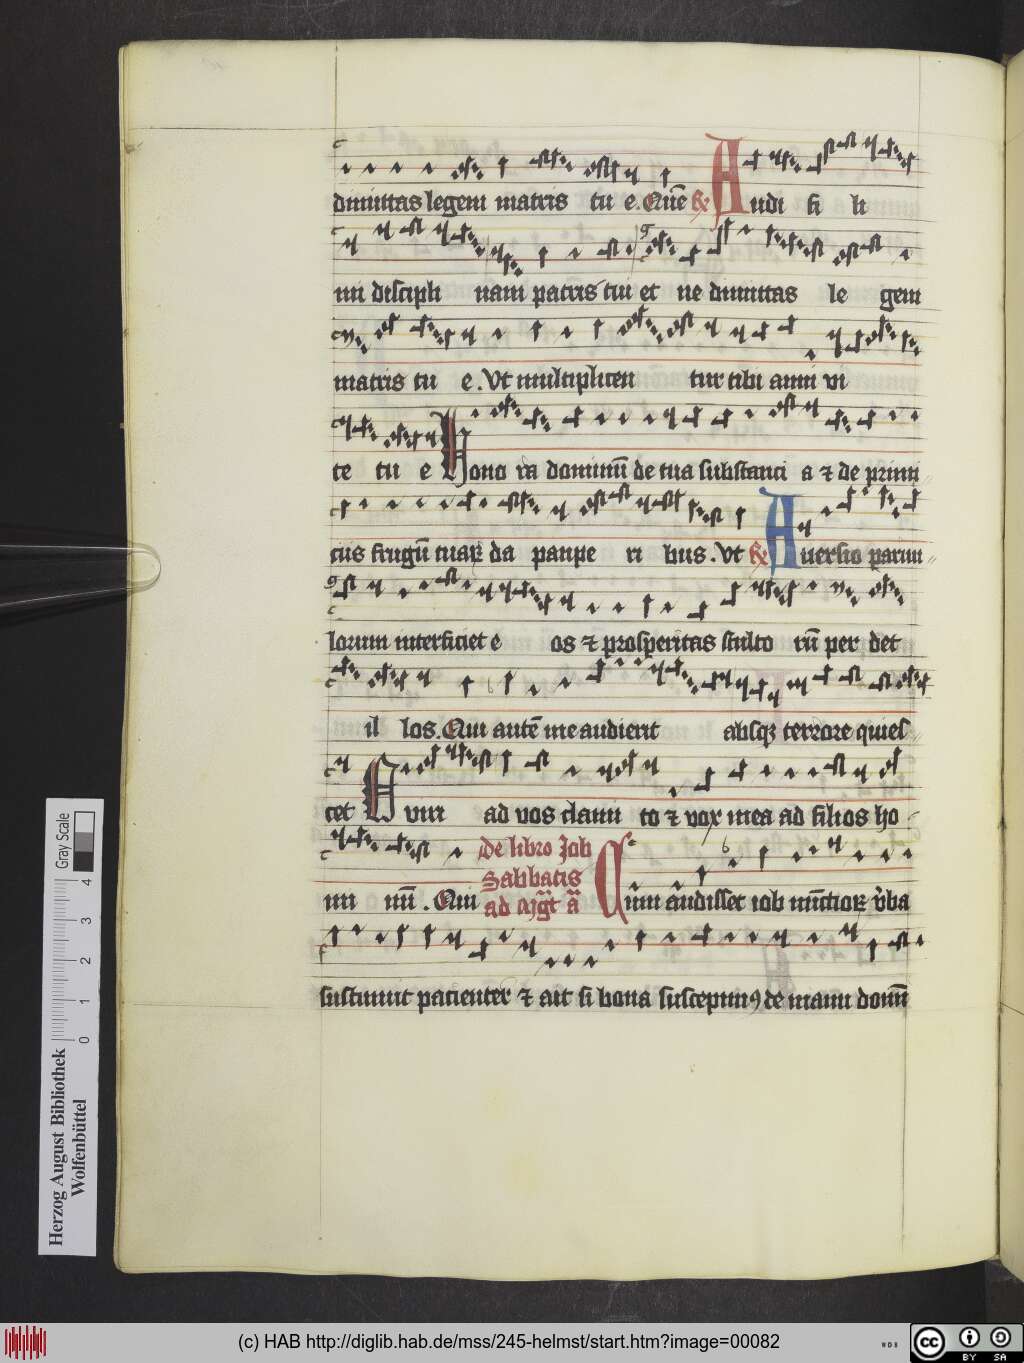 dimittas legem matris tu e. Que͂ R Audi fi li
mi discipli nam patris tui et ne dimittas le gem
matris tu e. Vt multiplicen tur tibi anni vi
te tu e Hono ra dominū de tua substanci a ⁊ de primi
ciis frugū tuaꝝ da paupe ri bus. Vt R Auersio paruu
lorum interficiet e os ⁊ prosperitas stulto rū per det
il los. Qui autē me audierit absqꝫ terrore quies
cet O viri ad vos clami to ⁊ vox mea ad filios ho
mi nū. Qui de libro Job
Sabbatis
ad mgt̄ a͞ Cum audisset iob nūctioꝝ v̓ba
sustinuit pacienter ⁊ ait si bona suscepimꝰ de manu domī
Herzog August Bibliothek
Wolfenbüttel
0 1 2 3 4
Gray Scale
(c) HAB http://diglib.hab.de/mss/245-helmst/start.htm?image=00082
WDB
cc BY SA